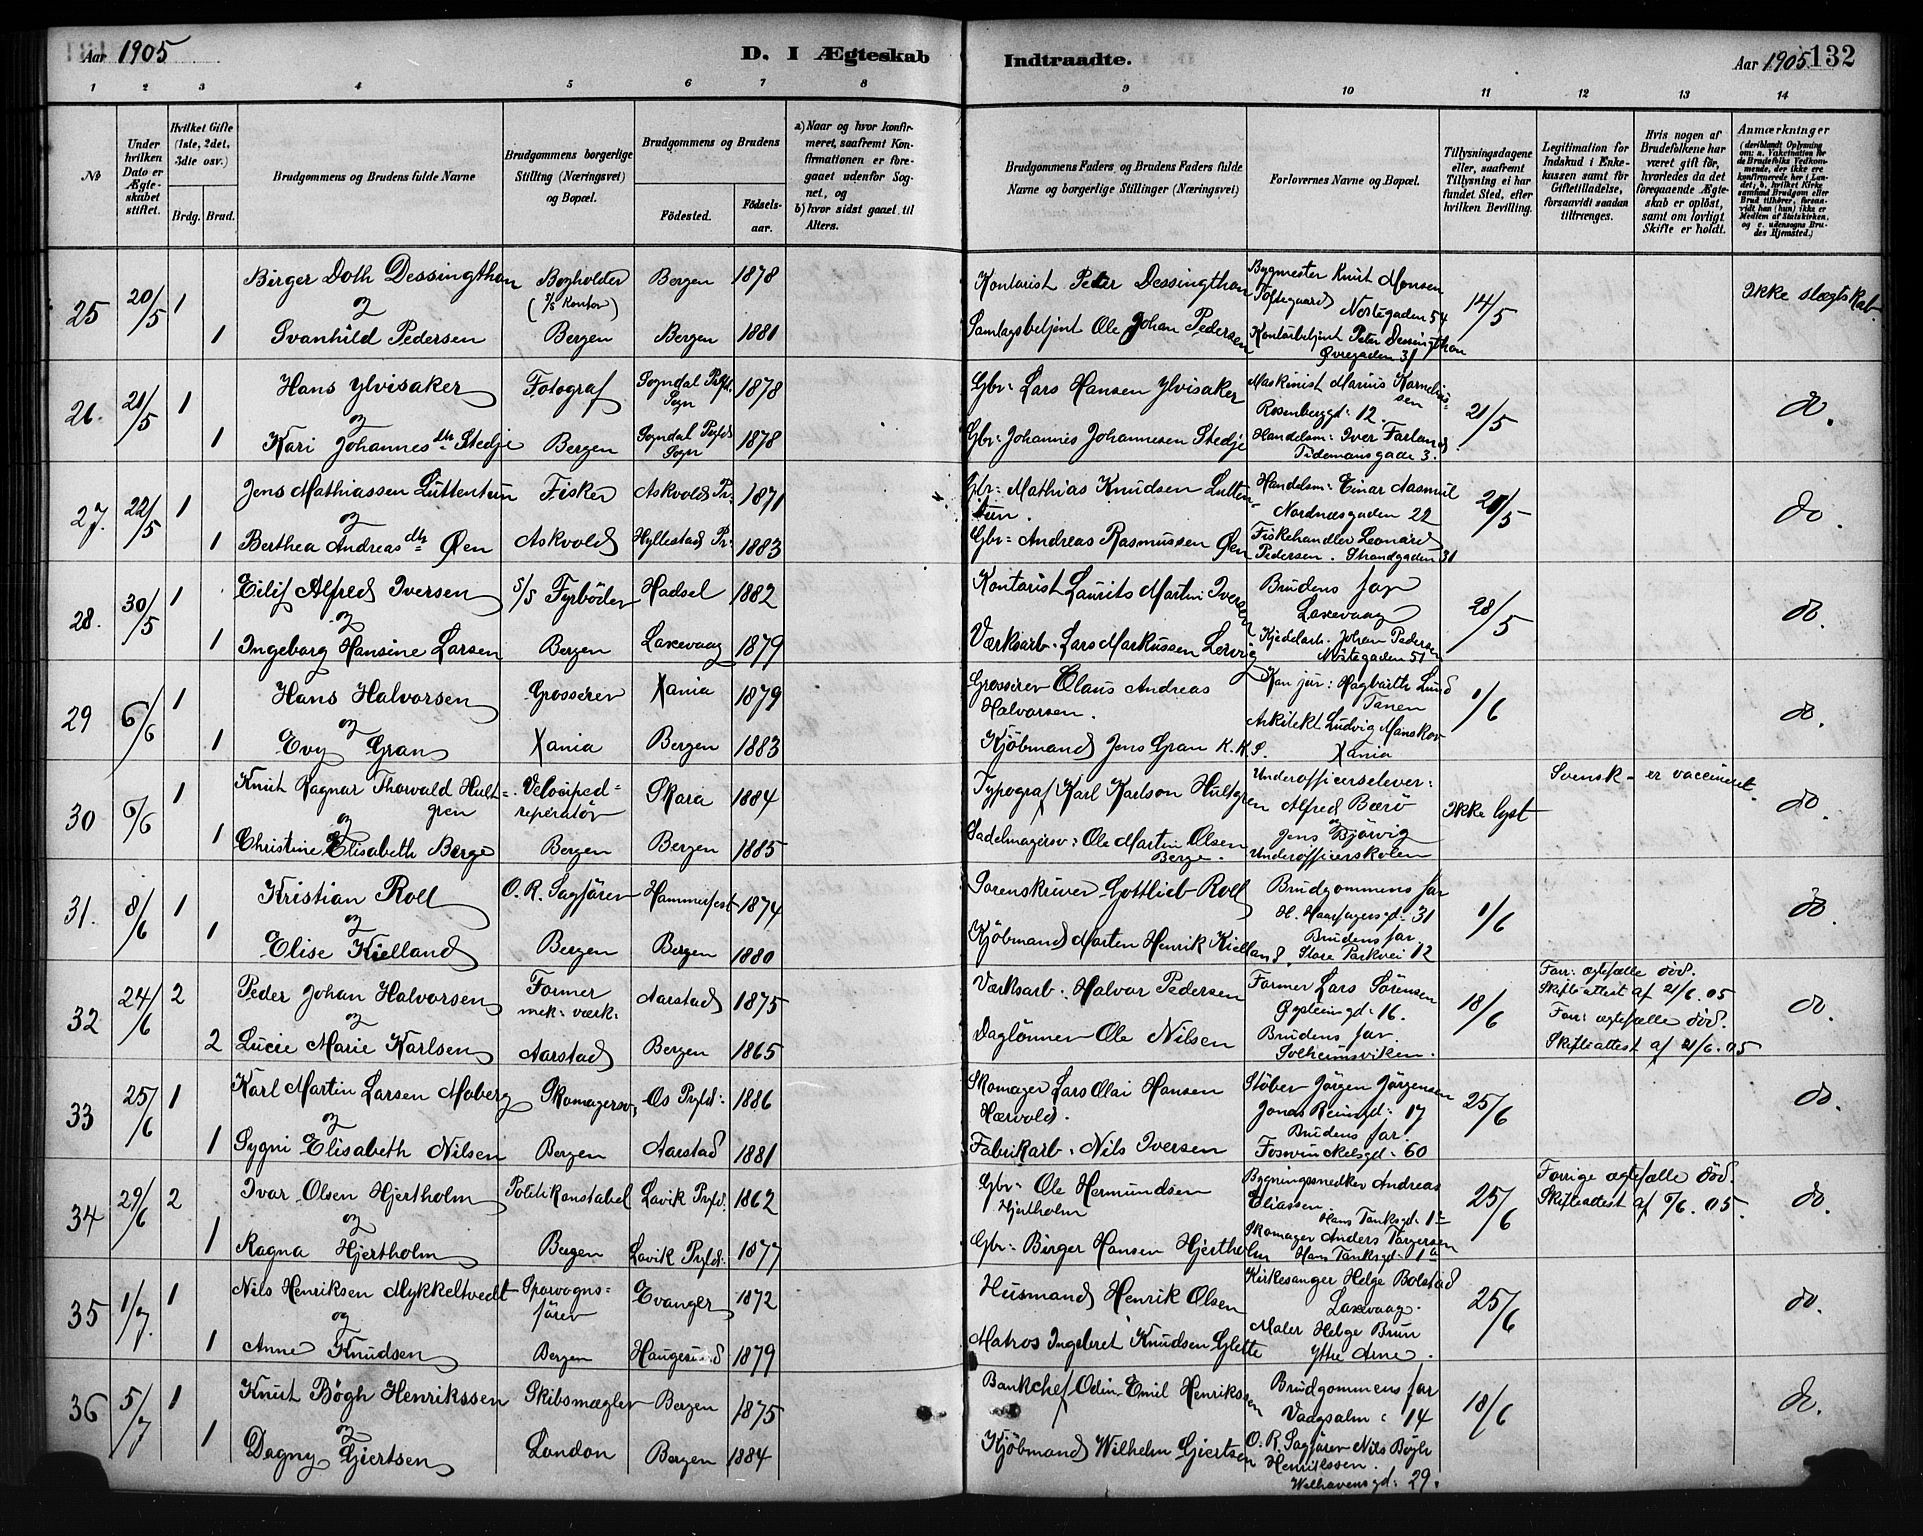 Aar 1905
D. I Ægteskab Indtraadte.
Aar 1905 132
1 2 3 4 5 6 7 8 9 10 11 12 13 14
No
Under hvilken Dato er Ægteskabet stiftet.
Hvilket Gifte (1ste, 2det, 3die osv.)
Brdg. Brud.
Brudgommens og Brudens fulde Navne
Brudgommens borgerlige Stilling (Næringsvei) og Bopæl.
Brudgommens og Brudens
Fødested. Fødselsaar.
a) Naar og hvor konfirmeret, saafremt Konfirmationen er foregaaet udenfor Sognet, og
b) hvor sidst gaaet til Alters.
Brudgommens Faders og Brudens Faders fulde Navne og borgerlige Stillinger (Næringsvei)
Forlovernes Navne og Bopæl.
Tillysningsdagene eller, saafremt Tillysning ei har fundet Sted, efter hvilken Bevilling.
Legitimation for Indskud i Enkekassen samt for Giftetilladelse, forsaavidt saadan tiltrænges.
Hvis nogen af Brudefolkene har været gift før, hvorledes da det foregaaende Ægteskab er opløst, samt om lovligt Skifte er holdt.
Anmærkninger (deriblandt Oplysning om: a. Vakcination for de Brudefolks Vedkommende, der ikke ere konfirmerede her i Landet; b. hvilket Kirkesamfund Brudgom eller Brud tilhører, forsaavidt han (hun) ikke er Medlem af Statskirken, og c. udensogns Brudes Hjemsted.)
25 20/5 1 Birger Doth Dessingthon Bogholder (s/s Kontor) Bergen 1878 Kontorist Peter Dessingthon Bygmester Knut Monsen Toftegaard Nostegaden 54 14/5 Ikke slægtskab.
og
1 Svanhild Pedersen Bergen Bergen 1881 Samlagsbetjent Ole Johan Pedersen Kontorbetjent Peter Dessingthon Øvregaden 31
26. 21/5 1 Hans Ylvisaker Fotograf Sogndal Prgld. Sogn 1878 Gbr: Lars Hansen Ylvisaker Maskinist Marius Kornelius-sen Rosenberggd: 12. 21/5 do.
og
1 Kari Johannesdtr Stedje Bergen Sogndal Prgld. Sogn 1878 Gbr: Johannes Johannesen Stedje Handelsm: Iver Farland Tidemansgade 3.
27. 22/5 1 Jens Mathiassen Luttentun Fisker Askvold Pr: 1871 Gbr: Mathias Knudsen Lutten-tun. Handelsm: Einar Aasmul Nordnæsgaden 22 21/5 do.
og
1 Berthea Andreasdtr Øen Askvold Hyllestad Pr: 1883 Gbr: Andreas Rasmussen Øen Fiskehandler Leonard Pedersen. Strandgaden 31
28. 30/5 1 Eilif Alfred Iversen s/s Fyrböder Hadsel 1882 Kontorist Laurits Martin Iversen Brudens far Laxevaag 28/5 do.
og
1 Ingeborg Hansine Larsen Bergen Laxevaag 1879 Værksarb. Lars Markussen Lervig Kjedelarb. Johan Pedersen Nöstegaden 51
29 6/6 1 Hans Halvorsen Grosserer Xania 1879 Grosserer Claus Andreas Halvorsen. Kan jur: Hagbarth Lund Tanen 1/6 do.
og
1 Evy Gran Xania Bergen 1883 Kjöbmand Jens Gran K.K.S. Arkitekt Ludvig Manskov Xania
30 6/6 1 Knut Ragnar Thorvald Hult-gren Velociped-reperatör Skara 1884 Typograf Karl Karlson Hultgren Underofficerselever: Alfred Bærö Ikke lyst Svensk - er vaccineret. do
og
1 Christine Elisabeth Berge Bergen Bergen 1885 Sadelmagersv: Ole Martin Olsen Berge. og Jens Bjørvig Underofficerskolen
31. 8/6 1 Kristian Roll O. R. Sagförer Hammerfest 1874 Sorenskriver Gottlieb Roll Brudgommens far H. Haarfagersgd: 31 1/6 do.
og
1 Elise Kielland Bergen Bergen 1880 Kjöbmand Morten Henrik Kielland. Brudens far Store Parkvei 12
32 24/6 2 Peder Johan Halvorsen Former mek: værk: Aarstad 1875 Værksarb. Halvor Pedersen Former Lars Sörensen Øysteingd: 16. 18/6 Forr: ægtefælle död. Skifteattest af 21/6.05 do.
og
2 Lucie Marie Karlsen Aarstad Bergen 1865 Daglönner Ole Nilsen Brudens far. Solheimsviken. Forr: ægtefælle död. Skifteattest af 21/6.05
33 25/6 1 Karl Martin Larsen Moberg Skomagersv. Os Prgld: 1886 Skomager Lars Olai Hansen Hærvold. Stöber Jörgen Jörgensen Jonas Reinsgd: 17 25/6 do.
og
1 Sygni Elisabeth Nilsen Bergen Aarstad 1881 Fabrikarb. Nils Iversen Brudens far. Fosvinckelsgd: 60
34 29/6 2 Ivar Olsen Hjertholm Politikonstabel Lavik Prgld: 1862 Gbr: Ole Hermundsen Hjertholm Bygningssnedker Andreas Eliassen. Hans Tanksgd: 1a 25/6 Forrige ægtefælle död. Skifteattest af 7/6.05. do.
og
1 Ragna Hjertholm Bergen Lavik Prgld: 1877 Gbr: Birger Hansen Hjertholm Skomager Anders Torgersen Hans Tanksgd: 1a
35 1/7. 1 Nils Henriksen Mykkeltvedt Sporvogns-förer Evanger 1872 Husmand Henrik Olsen Kirkesanger Helge Bolstad Laxevaag. 25/6 do.
og
1 Anne Knudsen Bergen Haugesund 1879 Matros Ingebret Knudsen Glette Maler Helge Brun Ytre Arne.
36 5/7 1 Knut Bögh Henrikssen Skibsmægler Bergen 1875 Bankchef Odin Emil Henrikssen Brudgommens far Vaagsalm: 14 18/6 do.
og
1 Dagny Gjertsen London Bergen 1884 Kjöbmand Wilhelm Gjertsen O. R. Sagförer Nils Bögh Henrikssen. Welhavensgd: 29.